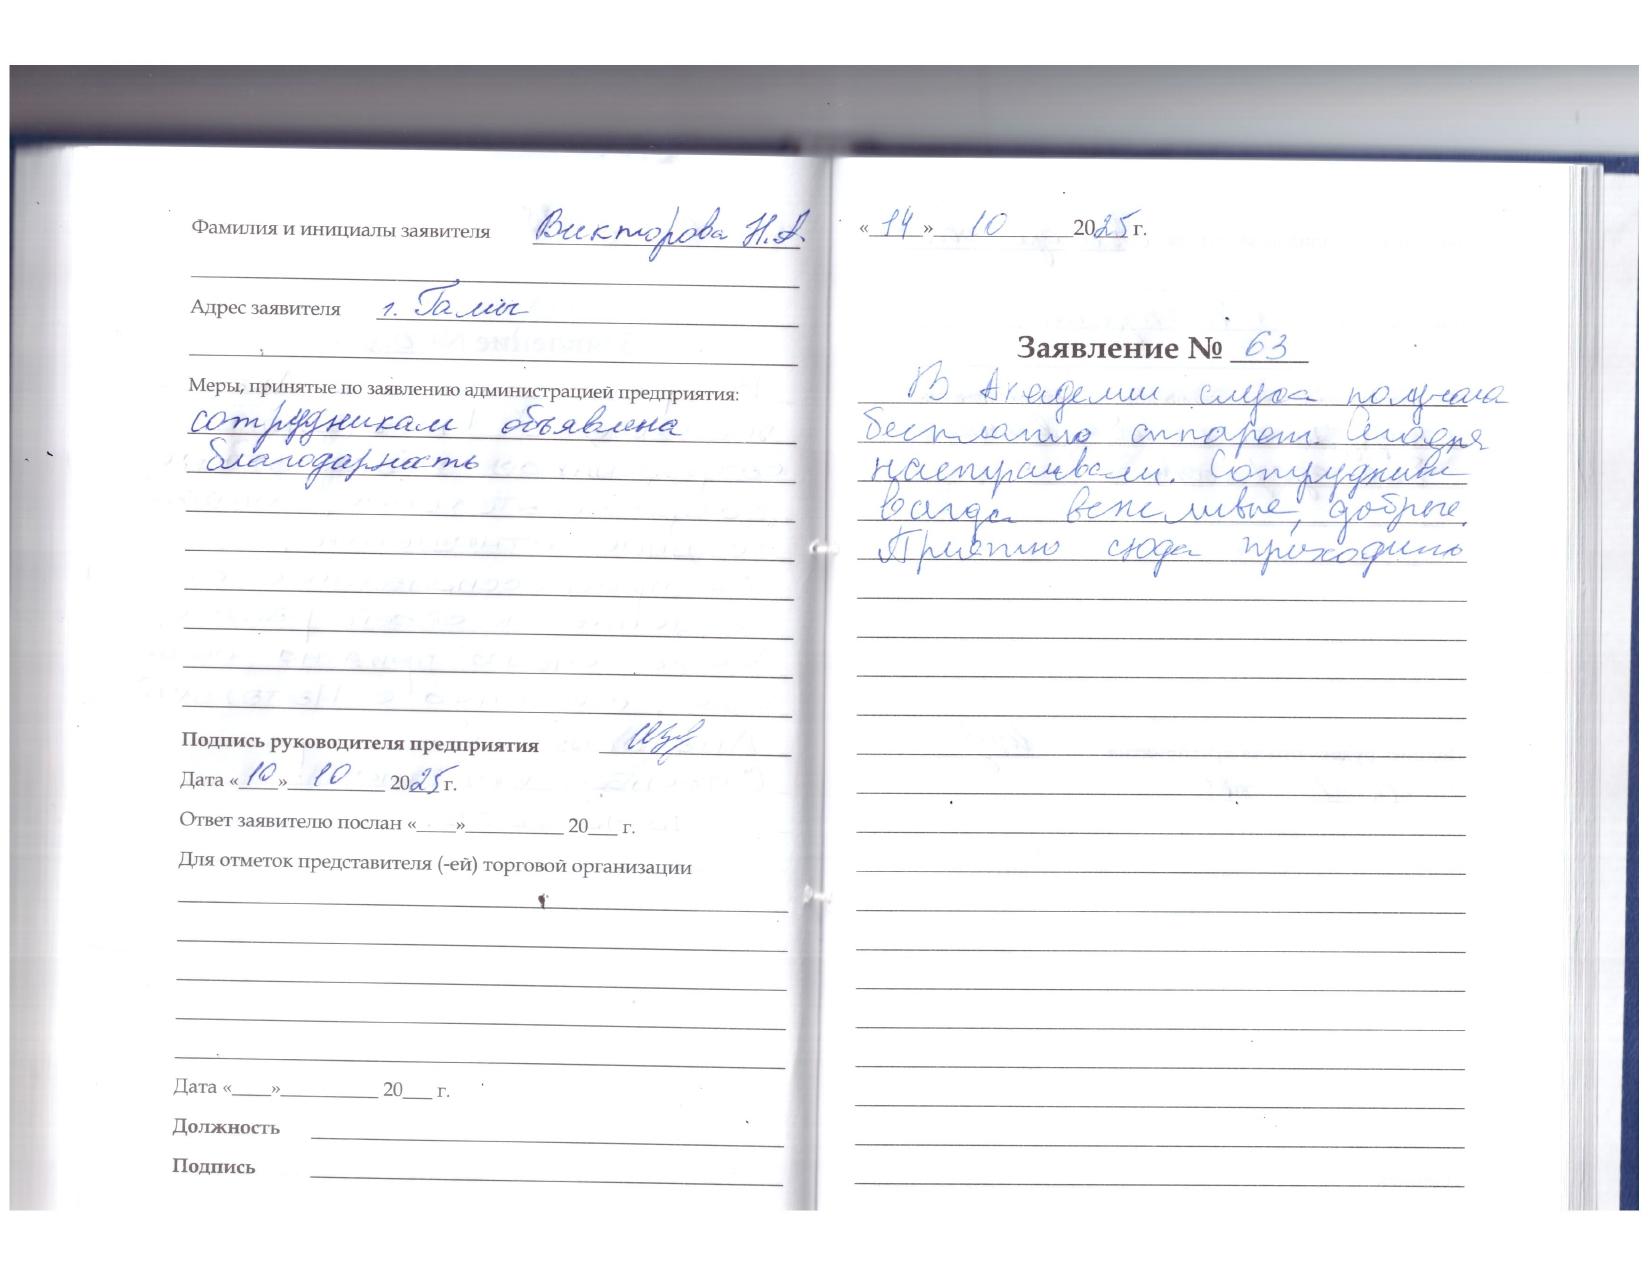 Фамилия и инициалы заявителя Викторова Н.А.
Адрес заявителя г.
Меры, принятые по заявлению администрацией предприятия:
сотрудникам объявлена
благодарность
Подпись руководителя предприятия
Дата «10» 10 2025 г.
Ответ заявителю послан «____»__________ 20___ г.
Для отметок представителя (-ей) торговой организации
Дата «____»__________ 20___ г.
Должность
Подпись
«14» 10 2025 г.
Заявление № 63
В Академии слуха получала
бесплатно аппарат. Сегодня
настраивали. Сотрудники
всегда вежливые, добрые.
Приятно сюда приходить